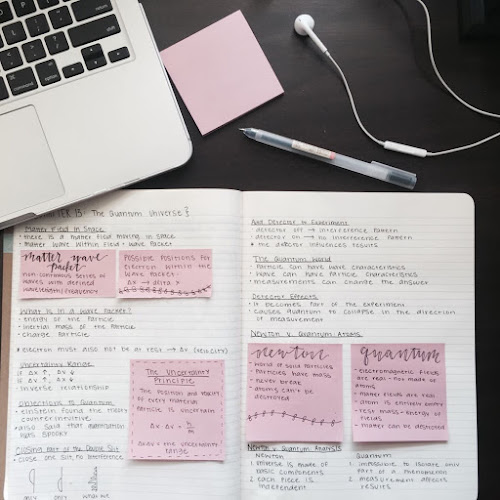 15: The Quantum Universe
Matter Field in Space
there is a matter field moving in space
matter wave within field = wave packet
matter wave packet
non-continuous series of
waves with defined
wavelength/frequency
Possible positions for
electron within the
wave packet:
Δx → delta x
What is in a Wave Packet?
energy of the particle
inertial mass of the particle
charge particle
electron must also not be at rest → Δv (velocity)
Uncertainty Range
if Δx ↑, Δv ↓
if Δx ↓, Δv ↑
inverse relationship
The Uncertainty
Principle
The position and velocity
of every material
particle is uncertain
Objections to Quantum
einstein found the theory
counterintuitive
also said that
Closing part of the Double Slit
close one slit, no interference
Add Detector to Experiment
detector off → interference pattern
detector on → no interference pattern
the detector influences results
The Quantum World
particle can have wave characteristics
wave can have particle characteristics
measurements can change the answer
Detector Effects
it becomes part of the experiment
causes quantum to collapse in the direction
of measurement
Newton v. Quantum Atoms
newton
world of solid particles
particles have mass
never break
atoms can't be
destroyed
quantum
electromagnetic fields
are real - not made of
atoms
matter fields are real
atom is entirely
rest mass = energy of
fields
matter can be destroyed
Newton v. Quantum Analysis
Newton
1. universe is made of
basic components
2. each piece is
independent
Quantum
1. impossible to isolate only
part of a phenomenon
2. measurement affects
results